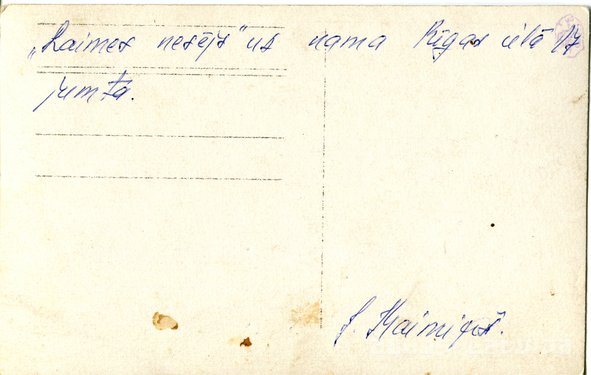 „Laimes nesējs" uz nama Rīgas ielā 17
jumta.